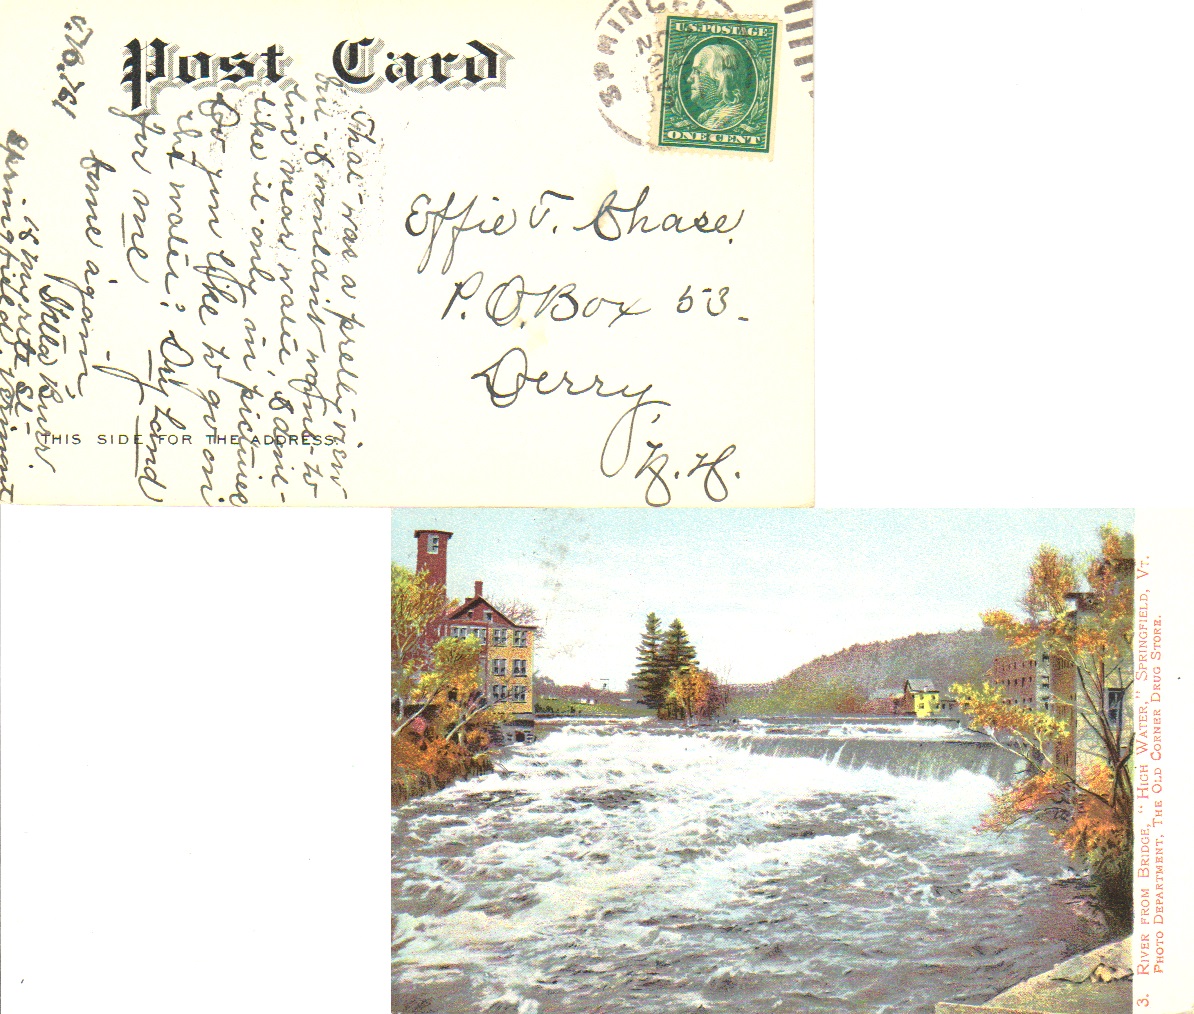 Post Card
THIS SIDE FOR THE ADDRESS.
SPRINGFI
U.S. POSTAGE
ONE CENT
Effie T. Chase.
P.O. Box 53.
Derry,
N.H.
That was a pretty view
but I wouldn't want to
live near water, I don't
like it only in pictures
Do you like to go on
the water? Dry Land
for me
Come again
Stella Burr.
18 Merritt St
Springfield, Vermont
3. RIVER FROM BRIDGE, "HIGH WATER," SPRINGFIELD, VT.
PHOTO DEPARTMENT, THE OLD CORNER DRUG STORE.